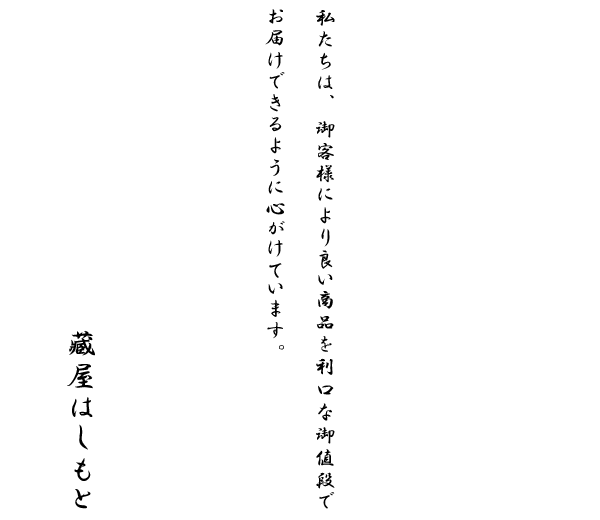 私たちは、御客様により良い商品を利口な御値段で
お届けできるように心がけています。
蔵屋はしもと